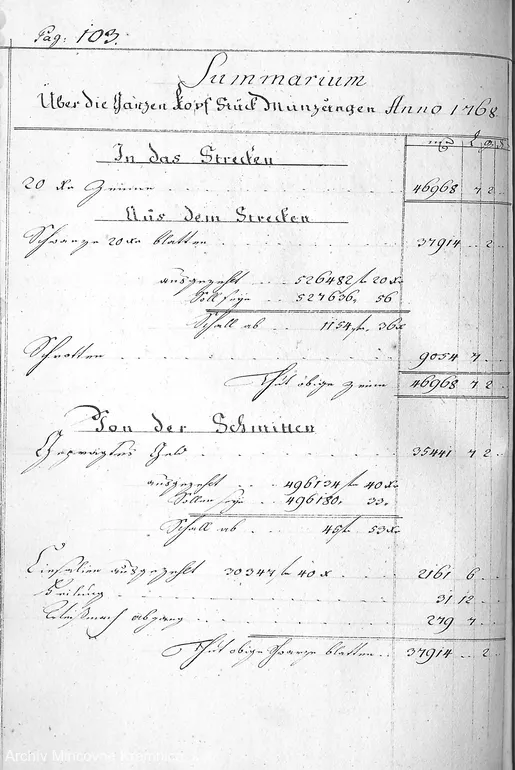 Pag: 103.
Summarium
Über die Ganzen Kopf Stück Münzungen Anno 1768
In das Strecken
20 Xr Zeinne . . . 46968 7 2
Aus dem Strecken
Schwarze 20 Xr blatten . . . 37914 .. 2
ausgezehlt . . . 526482 f 20 Xr
Soll seyn . . 527636. 56
Schall ab . . 1154 f. 36 X
Schrotten . . . 9054 7
Thut obige Zeinne . . 46968 7 2
Von der Schmitten
Geprägtes Geld . . . 35441 7 2
ausgezehlt . . 496134 f 40 Xr
Sollen seyn . . 496180. 33.
Schall ab . . 45 f 53 Xr
ausgezehlt 30347 f 40 X . . . 2161 6
31 12
abgang . . . 279 7
Thut obige Schwarze blatten . . 37914 .. 2
Archiv Mincovne Kremnica